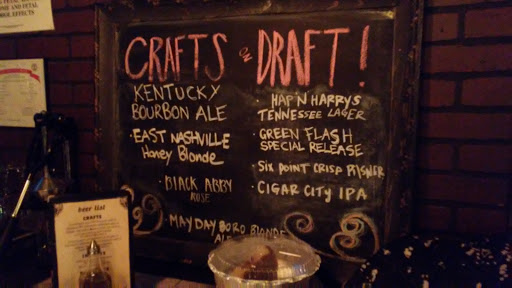 CRAFTS e DRAFT!
KENTUCKY
BOURBON ALE
· EAST NASHVILLE
Honey Blonde
· BLACK ABBY
ROSE
· MAYDAY BORO BLONDE
ALE
· HAP'N HARRYS
TENNESSEE LAGER
· GREEN FLASH
SPECIAL RELEASE
· SIX POINT CRISP PILSNER
· CIGAR CITY IPA
beer list
CRAFTS